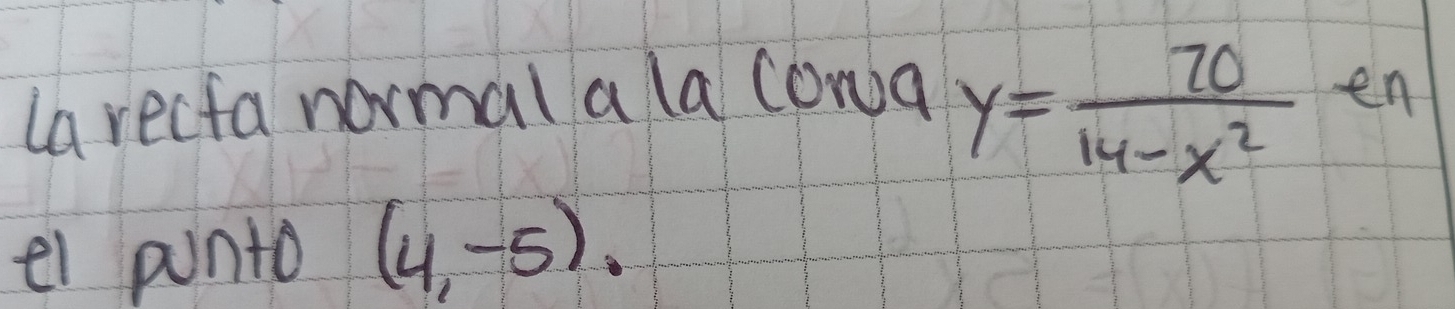 la recta normal a la curva y = 70/(14-x²) en
el punto (4,-5).